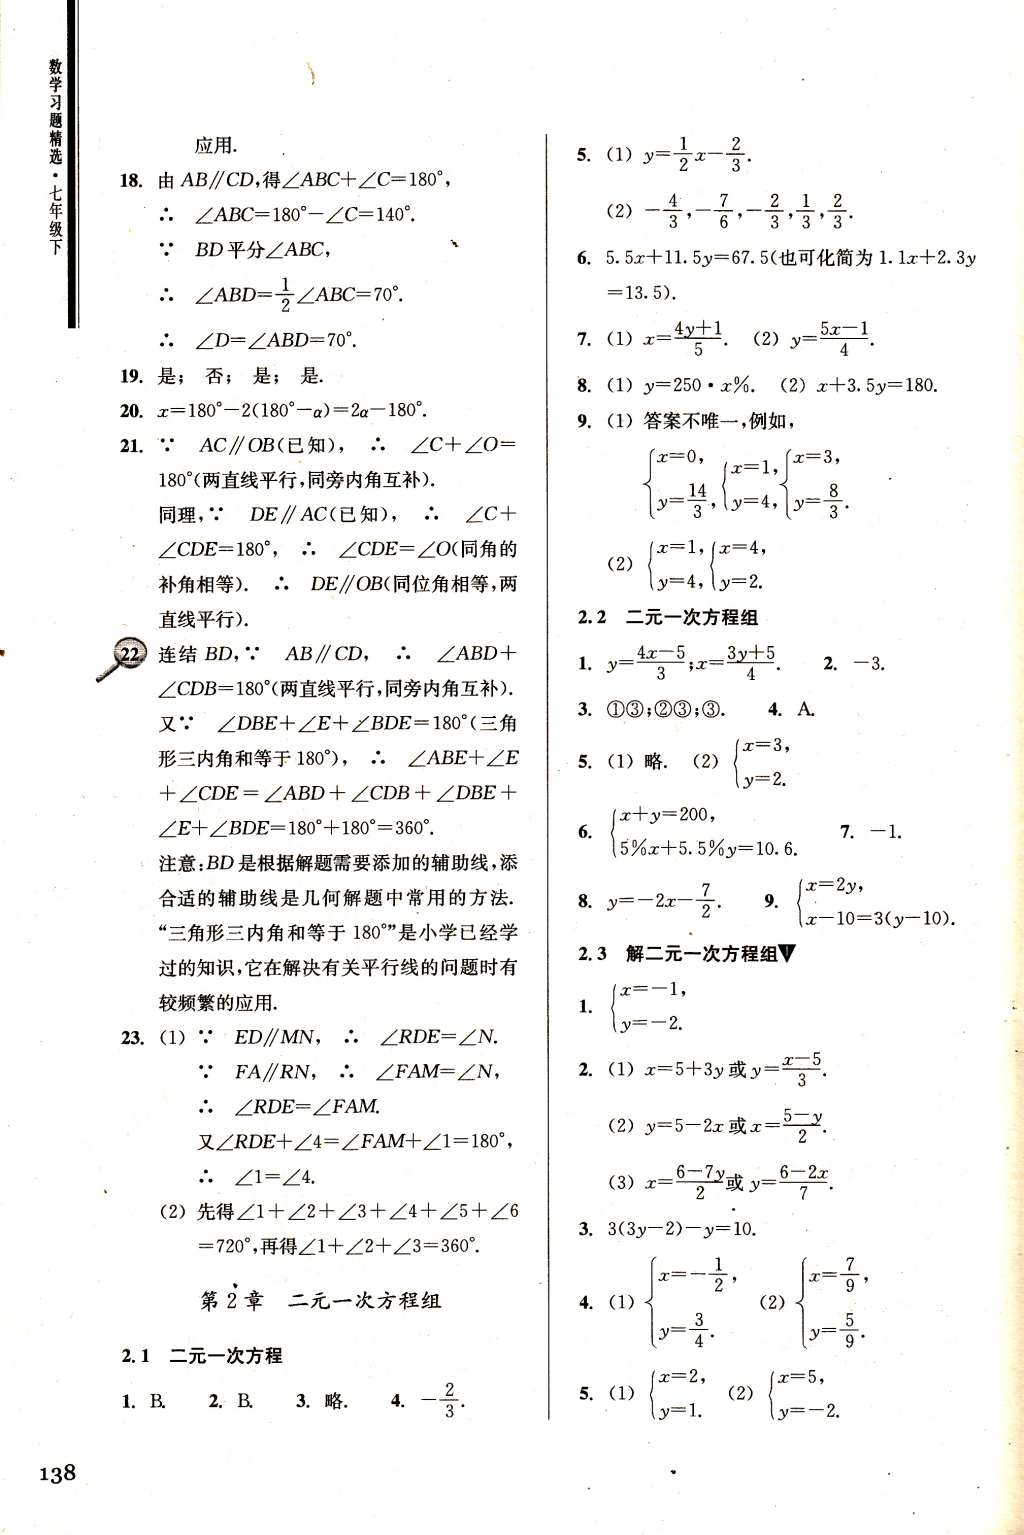 数学习题精选·七年级下
应用.
18. 由 AB∥CD,得∠ABC+∠C=180°,
∴ ∠ABC=180°-∠C=140°.
∵ BD 平分∠ABC,
∴ ∠ABD=1/2∠ABC=70°.
∴ ∠D=∠ABD=70°.
19. 是; 否; 是; 是.
20. x=180°-2(180°-α)=2α-180°.
21. ∵ AC∥OB(已知), ∴ ∠C+∠O=
180°(两直线平行,同旁内角互补).
同理,∵ DE∥AC(已知), ∴ ∠C+
∠CDE=180°, ∴ ∠CDE=∠O(同角的
补角相等). ∴ DE∥OB(同位角相等,两
直线平行).
22. 连结 BD,∵ AB∥CD, ∴ ∠ABD+
∠CDB=180°(两直线平行,同旁内角互补).
又∵ ∠DBE+∠E+∠BDE=180°(三角
形三内角和等于 180°), ∴ ∠ABE+∠E
+∠CDE=∠ABD+∠CDB+∠DBE+
∠E+∠BDE=180°+180°=360°.
注意:BD 是根据解题需要添加的辅助线,添
合适的辅助线是几何解题中常用的方法.
“三角形三内角和等于 180°”是小学已经学
过的知识,它在解决有关平行线的问题时有
较频繁的应用.
23. (1) ∵ ED∥MN, ∴ ∠RDE=∠N.
∵ FA∥RN, ∴ ∠FAM=∠N,
∴ ∠RDE=∠FAM.
又∠RDE+∠4=∠FAM+∠1=180°,
∴ ∠1=∠4.
(2) 先得∠1+∠2+∠3+∠4+∠5+∠6
=720°,再得∠1+∠2+∠3=360°.
第 2 章 二元一次方程组
2.1 二元一次方程
1. B. 2. B. 3. 略. 4. -2/3.
5. (1) y=1/2x-2/3.
(2) -4/3,-7/6,-2/3,1/3,2/3.
6. 5.5x+11.5y=67.5(也可化简为 1.1x+2.3y
=13.5).
7. (1) x=(4y+1)/5. (2) y=(5x-1)/4.
8. (1) y=250·x%. (2) x+3.5y=180.
9. (1) 答案不唯一,例如,
{x=0, y=14/3, {x=1, y=4, {x=3, y=8/3.
(2) {x=1, y=4, {x=4, y=2.
2.2 二元一次方程组
1. y=(4x-5)/3;x=(3y+5)/4. 2. -3.
3. ①③;②③;③. 4. A.
5. (1) 略. (2) {x=3, y=2.
6. {x+y=200, 5%x+5.5%y=10.6. 7. -1.
8. y=-2x-7/2. 9. {x=2y, x-10=3(y-10).
2.3 解二元一次方程组▼
1. {x=-1, y=-2.
2. (1) x=5+3y 或 y=(x-5)/3.
(2) y=5-2x 或 x=(5-y)/2.
(3) x=(6-7y)/2 或 y=(6-2x)/7.
3. 3(3y-2)-y=10.
4. (1) {x=-1/2, y=3/4. (2) {x=7/9, y=5/9.
5. (1) {x=2, y=1. (2) {x=5, y=-2.
138